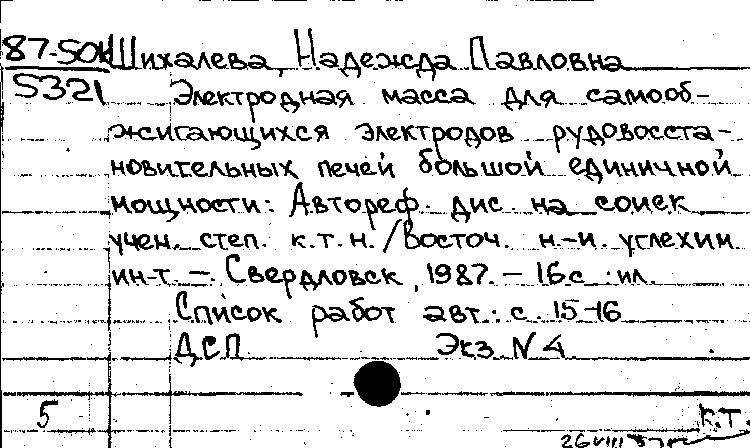 87-50к Шихалева, Надежда Павловна
5321 Электродная масса для самооб-
жигающихся электродов рудовосста-
новительных печей большой единичной
мощности: Автореф. дис. на соиск
учен. степ. к.т.н./Восточ. н.-и. углехим
ин-т. – Свердловск, 1987. – 16с.: ил.
Список работ авт.: с. 15-16
ДСП Экз N 4
5 К.Т
26 VIII 87г